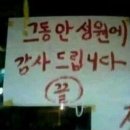 그동안 성원에
감사드립니다
끝